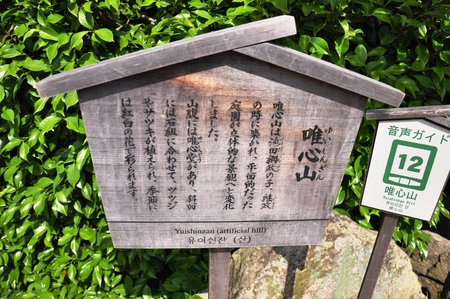 ゆいしんざん
唯心山
唯心山は池田綱政の子、継政
の時に築かれ、平面的だった
庭園が立体的な景観へと変化
しました。
山腹には唯心堂があり、斜面
には石組に合わせて、ツツジ
やサツキが植えられ、季節に
は紅白の花で彩られます
Yuishinzan (artificial hill)
유이신잔 (산)
音声ガイド
12
唯心山
Yuishinzan Hill